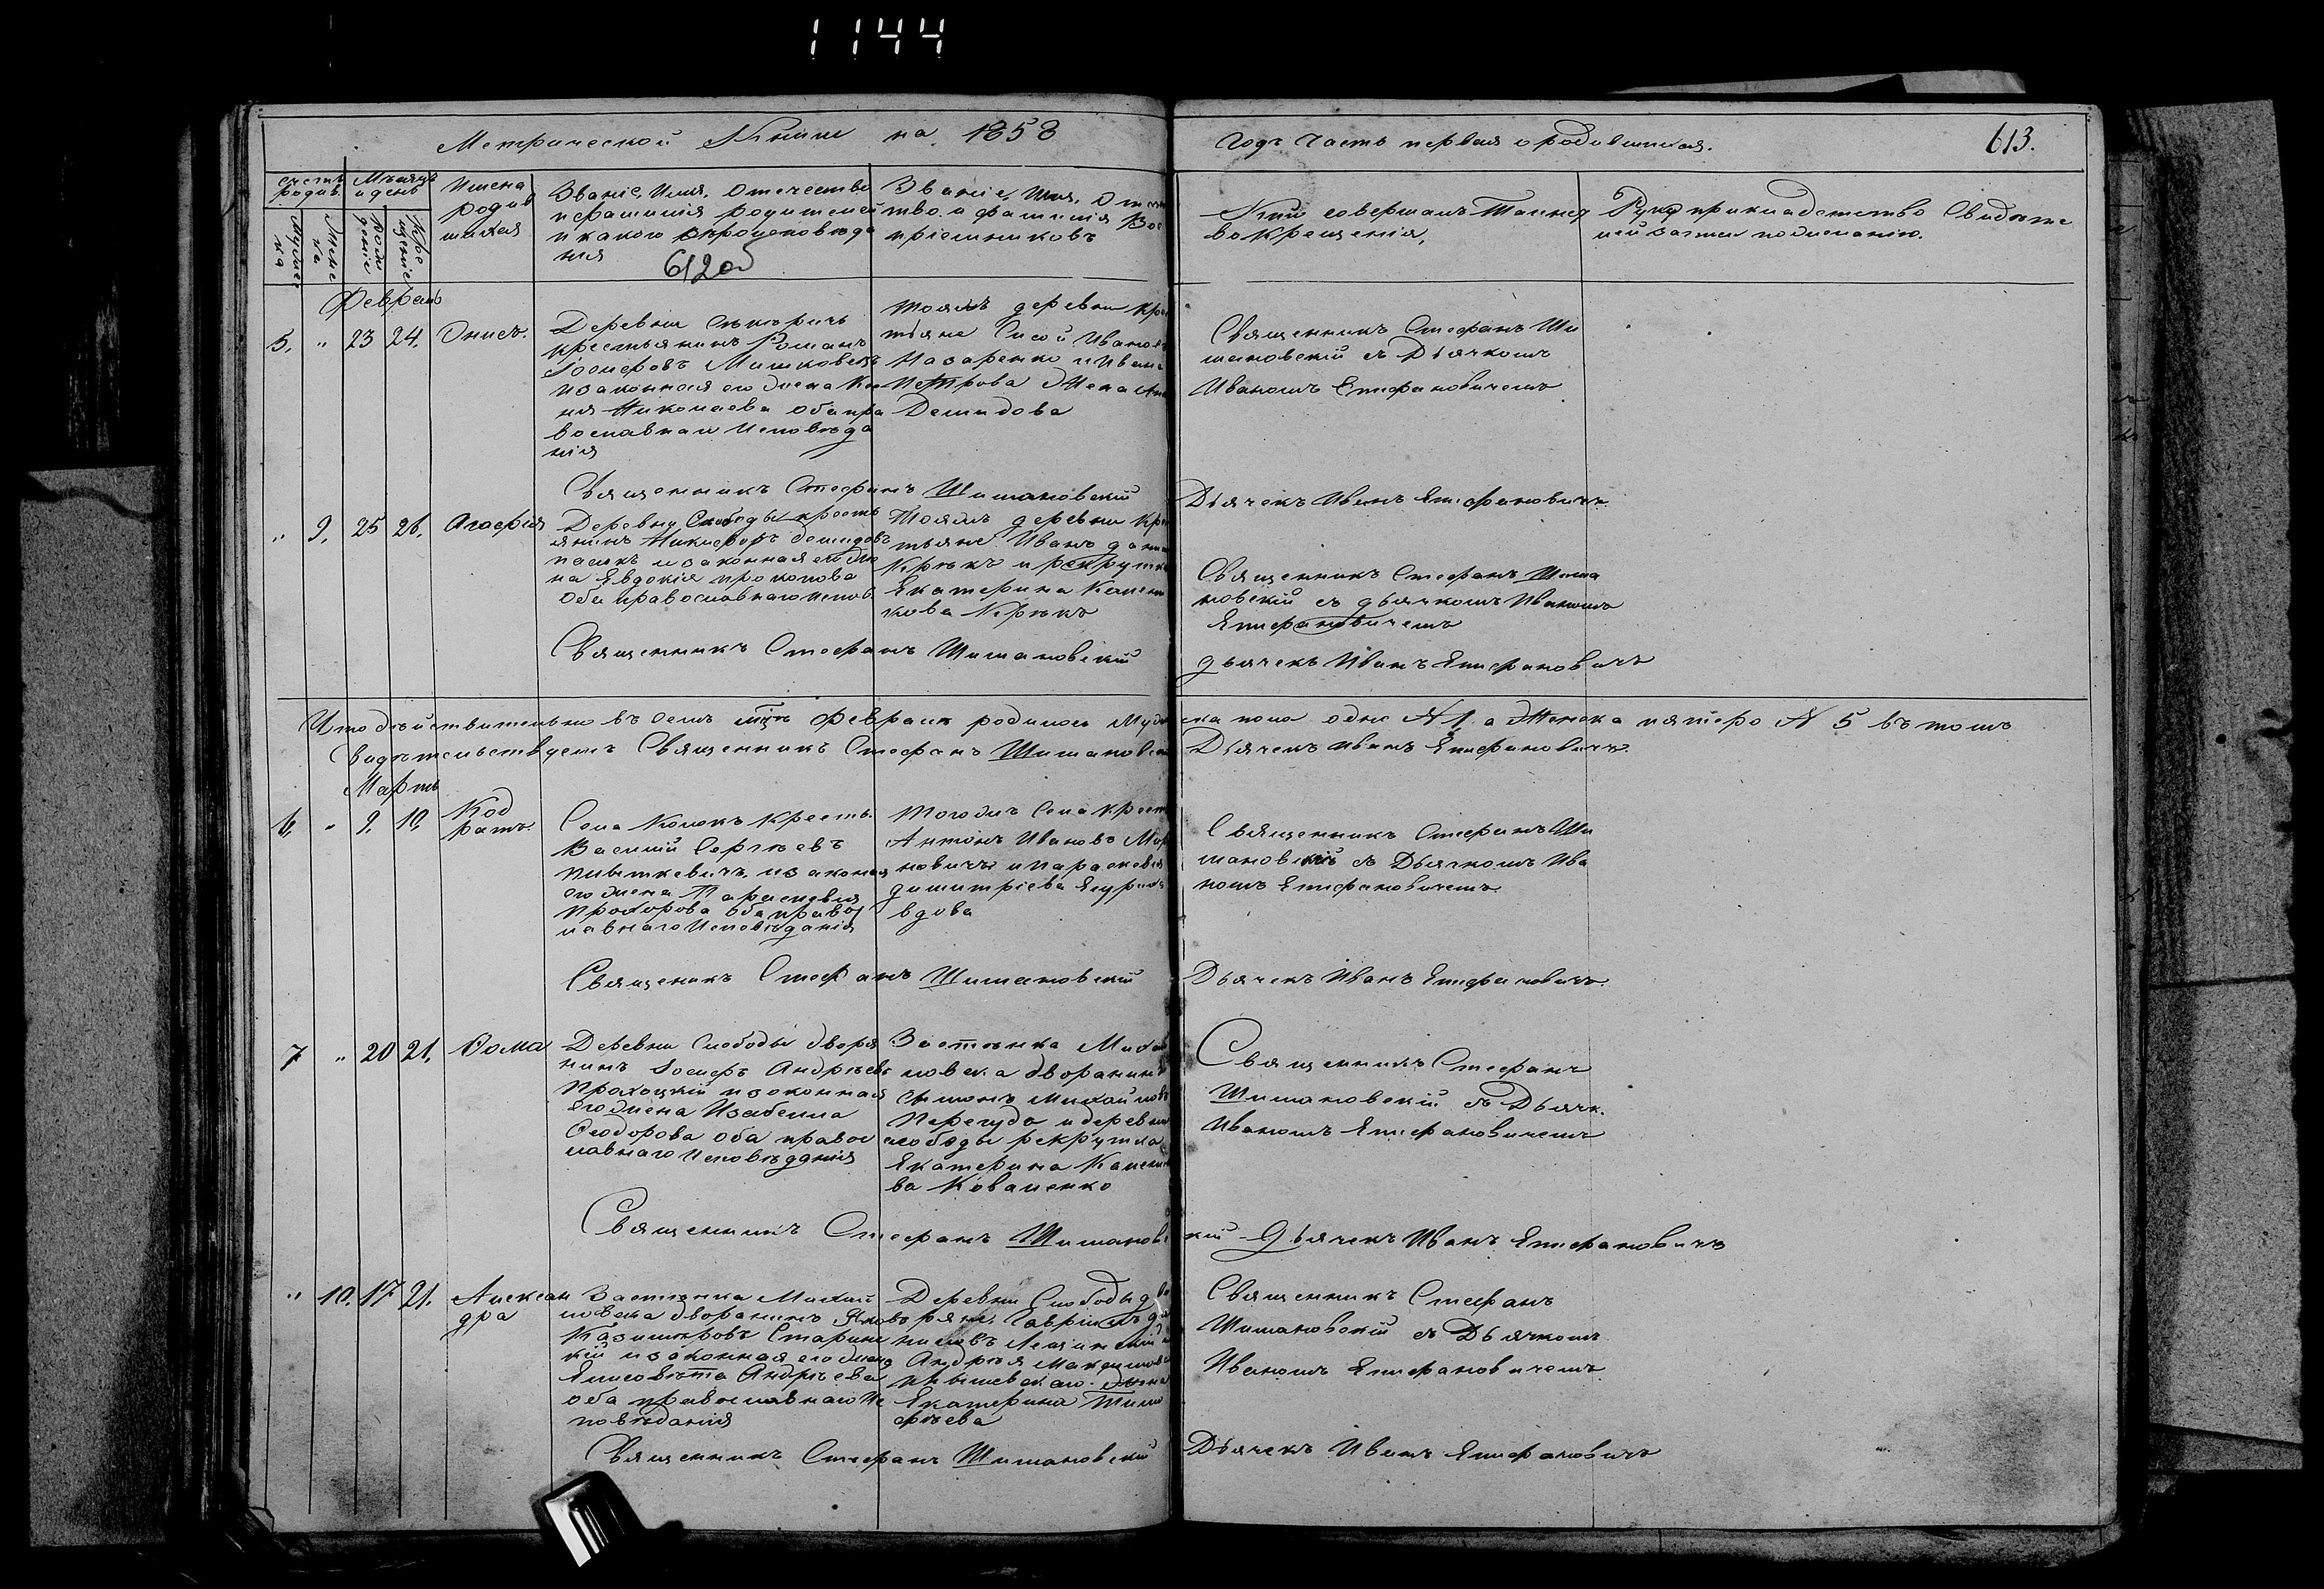 1144
Метрической Книги на 1858
годъ часть первая о родившихся.
613.
счетъ родив.
Мѣсяцъ и день
Имена родив шихся
Званіе, Имя, Отечество
и фамилія родителей
и какого вѣроисповѣда
нія
612 об
Званіе, Имя, Отече
тво и фамилія Вос
пріемниковъ
Кто совершалъ Таинст
во Крещенія,
Рукоприкладство Свидѣте
лей записи по желанію.
Мужес ка
Женс ка
Рож деніе
Кре щеніе
Февраль
5. " 23 24. Онисъ.
Деревни
крестьянинъ Романъ
Іосифовъ
и законная его жена
Николаева оба пра
вославнаго Исповѣда
нія
тояжъ деревни крес
тьяне Сисой Ивановъ
Назаренко и Ивана
Петрова жена
Демидова
Священникъ Стефанъ Ши
мановскій съ Дьячкомъ
Иваномъ Епифановичемъ
Священникъ Стефанъ Шимановскій
Дьячекъ Иванъ Епифановичъ
" 9. 25 26. Агафія
Деревни Слободы кресть
янинъ Никифоръ Демидовъ
и законная его же
на Евдокія Прокопова
оба православнаго испов.
Тояжъ деревни кре
тьяне Иванъ
и рекрутка
Екатерина
Священникъ Стефанъ Шима
новскій съ дьячкомъ Иваномъ
Епифановичемъ
Священникъ Стефанъ Шимановскій
дьячекъ Иванъ Епифановичъ
Что дѣйствительно въ семъ мцѣ Февралѣ родилось Муже
ска пола одно № 1. а Женска пятеро № 5 въ томъ
Свидѣтельствуемъ Священникъ Стефанъ Шимановскій
Дьячекъ Иванъ Епифановичъ
Мартъ
6, " 9. 10, Код
ратъ.
Села кресть.
Василій Сергѣевъ
и законная
его жена Параскевія
Прохорова оба правос
лавнаго Исповѣданія
Тогожъ Села крест
Антонъ Ивановъ
новичъ и Параскевія
Димитріева
вдова
Священникъ Стефанъ Ши
мановскій съ Дьячкомъ Ива
номъ Епифановичемъ
Священикъ Стефанъ Шимановскій
Дьячекъ Иванъ Епифановичъ.
7 " 20 21. Ѳома
Деревни Слободы дворя
нинъ Іосифъ Андрѣевъ
и законная
его жена Изабелла
Ѳеодорова оба правос
лавнаго Исповѣданія
Застѣнка Михай
ловска дворанинъ
Михайловъ
Перегудъ и деревни
слободы рекрутка
Екатерина
ва Коваленко
Священникъ Стефанъ
Шимановскій съ Дьячк.
Иваномъ Епифановичемъ
Священникъ Стефанъ Шимановс
кій Дьячекъ Иванъ Епифановичъ
" 10. 17 21. Алексан
дра
Застѣнка Михай
ловска дворанинъ Яковъ
Казимировъ
кій и законная его жена
Елисовѣта Андрѣева
оба православнаго Ис
повѣданія
Деревни Слободы дво
ряне, Гавріилъ
Андрѣя Максимова
жена
Екатерина Тимо
фѣева
Священникъ Стефанъ
Шимановскій съ Дьячкомъ
Иваномъ Епифановичемъ
Священникъ Стефанъ Шимановскій
Дьячекъ Иванъ Епифановичъ